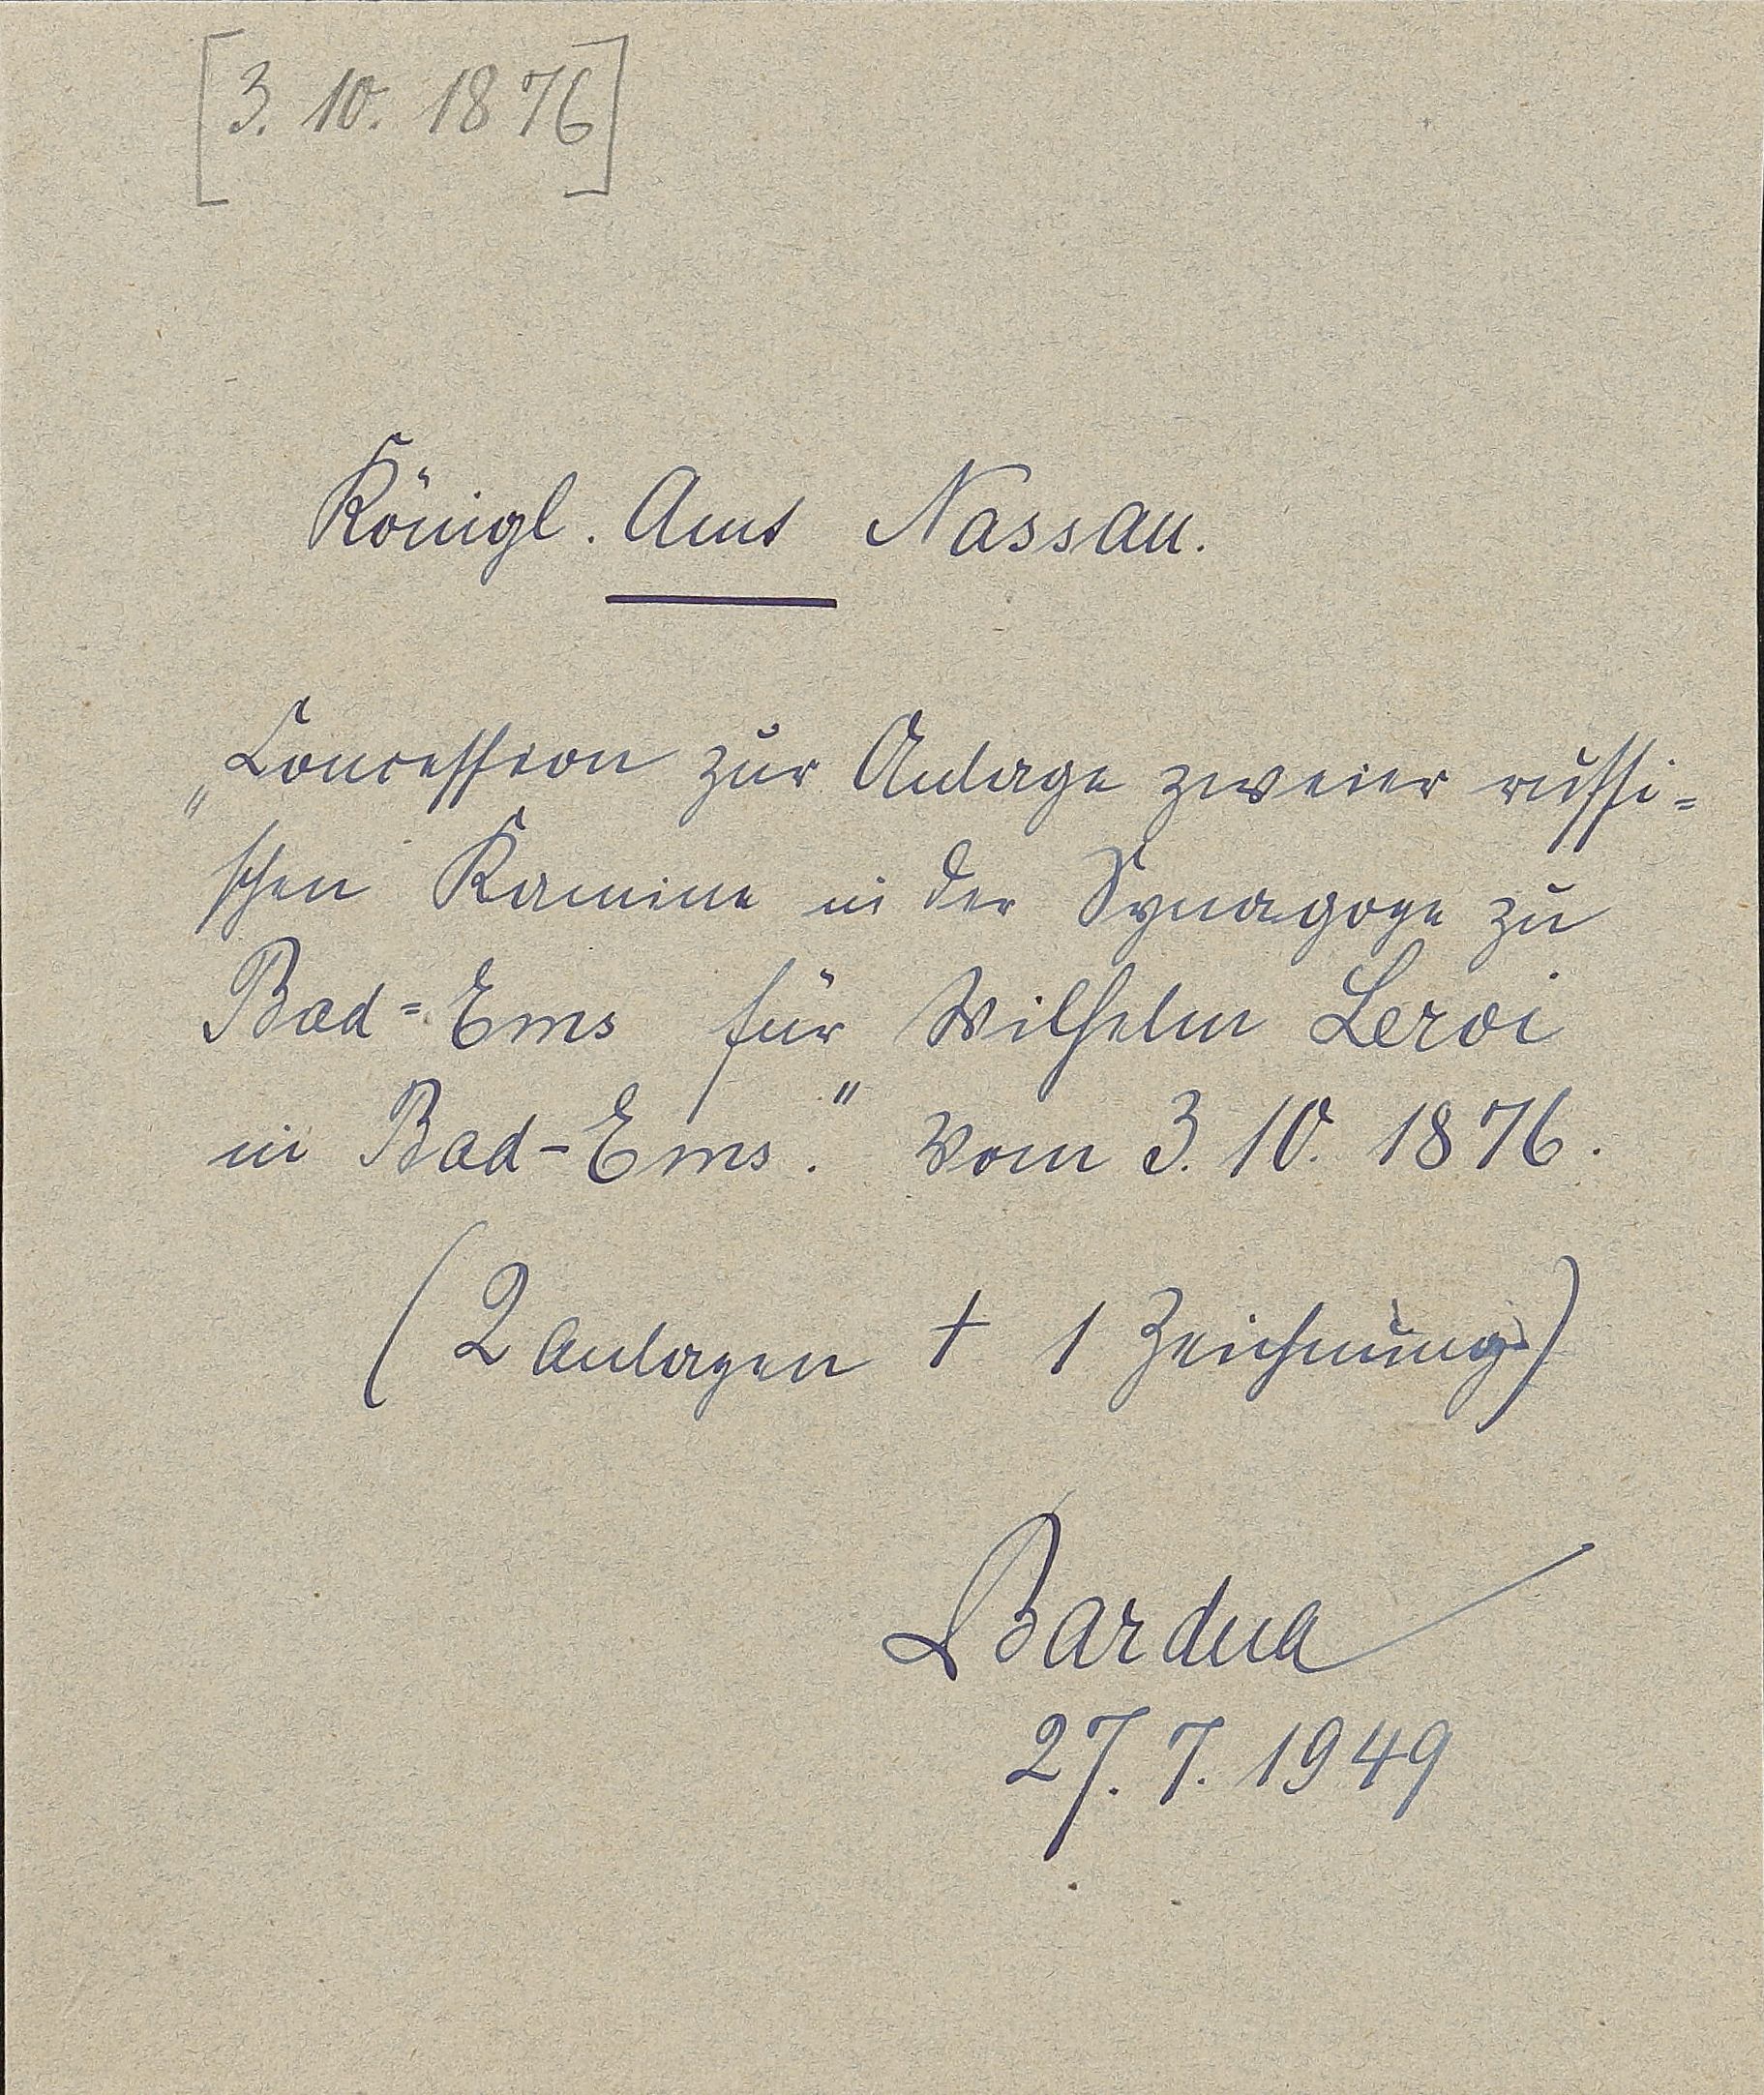 [3. 10. 1876]
Königl. Amt Nassau.
„Concession zur Anlage zweier russi=
schen Kamine in der Synagoge zu
Bad=Ems für Wilhelm Leroi
in Bad-Ems." Vom 3. 10. 1876.
(2 Anlagen + 1 Zeichnung)
Bardua
27. 7. 1949